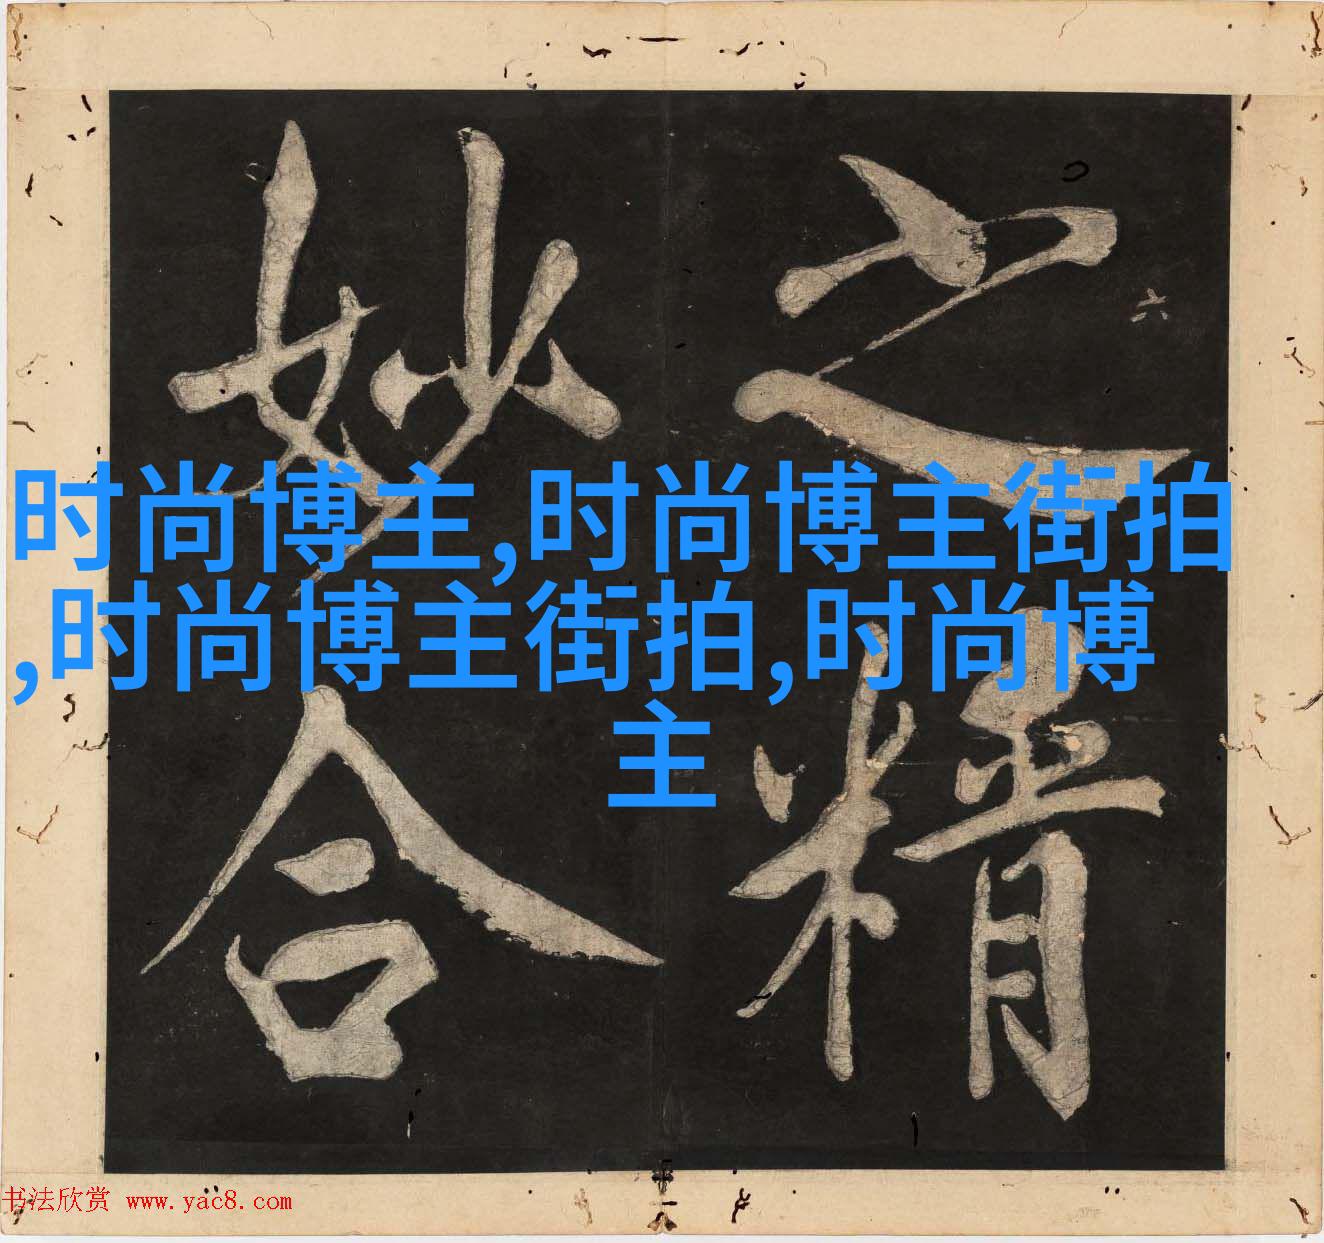 之精
妙合
六
时尚博主,时尚博主街拍
,时尚博主街拍,时尚博
主
书法欣赏 www.yac8.com